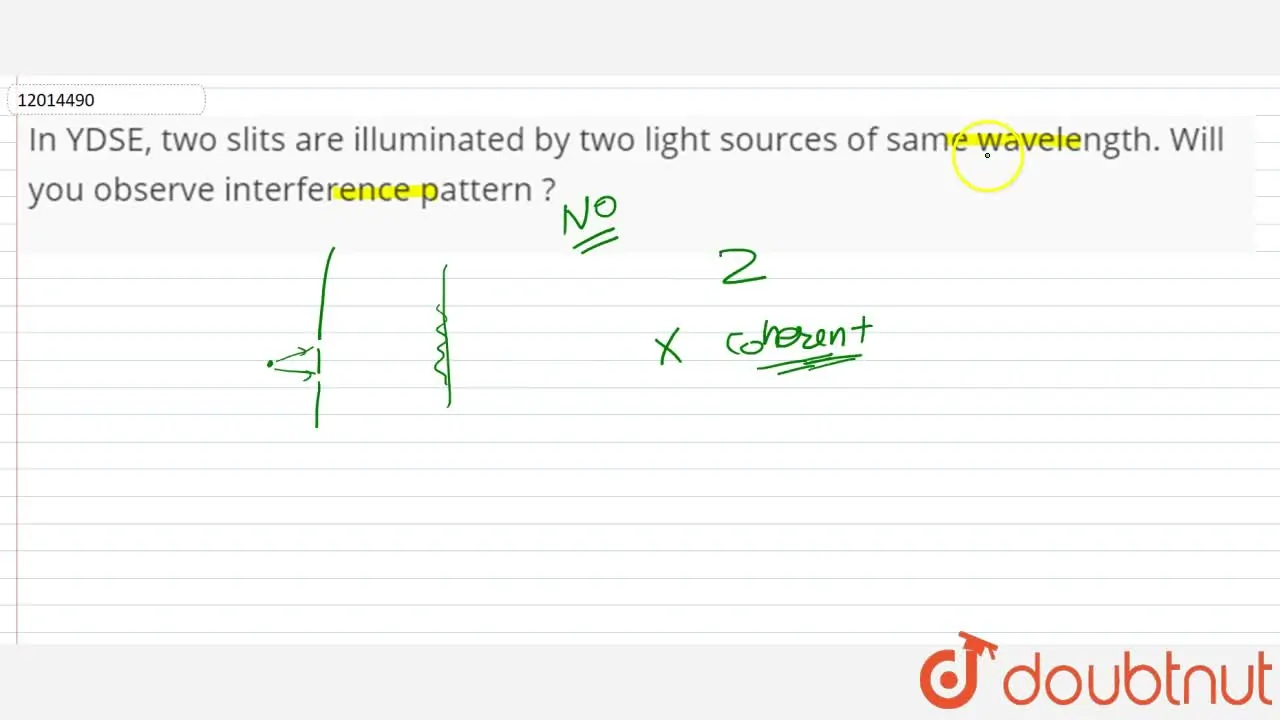 12014490
In YDSE, two slits are illuminated by two light sources of same wavelength. Will
you observe interference pattern ?
NO
2
X coherent
doubtnut